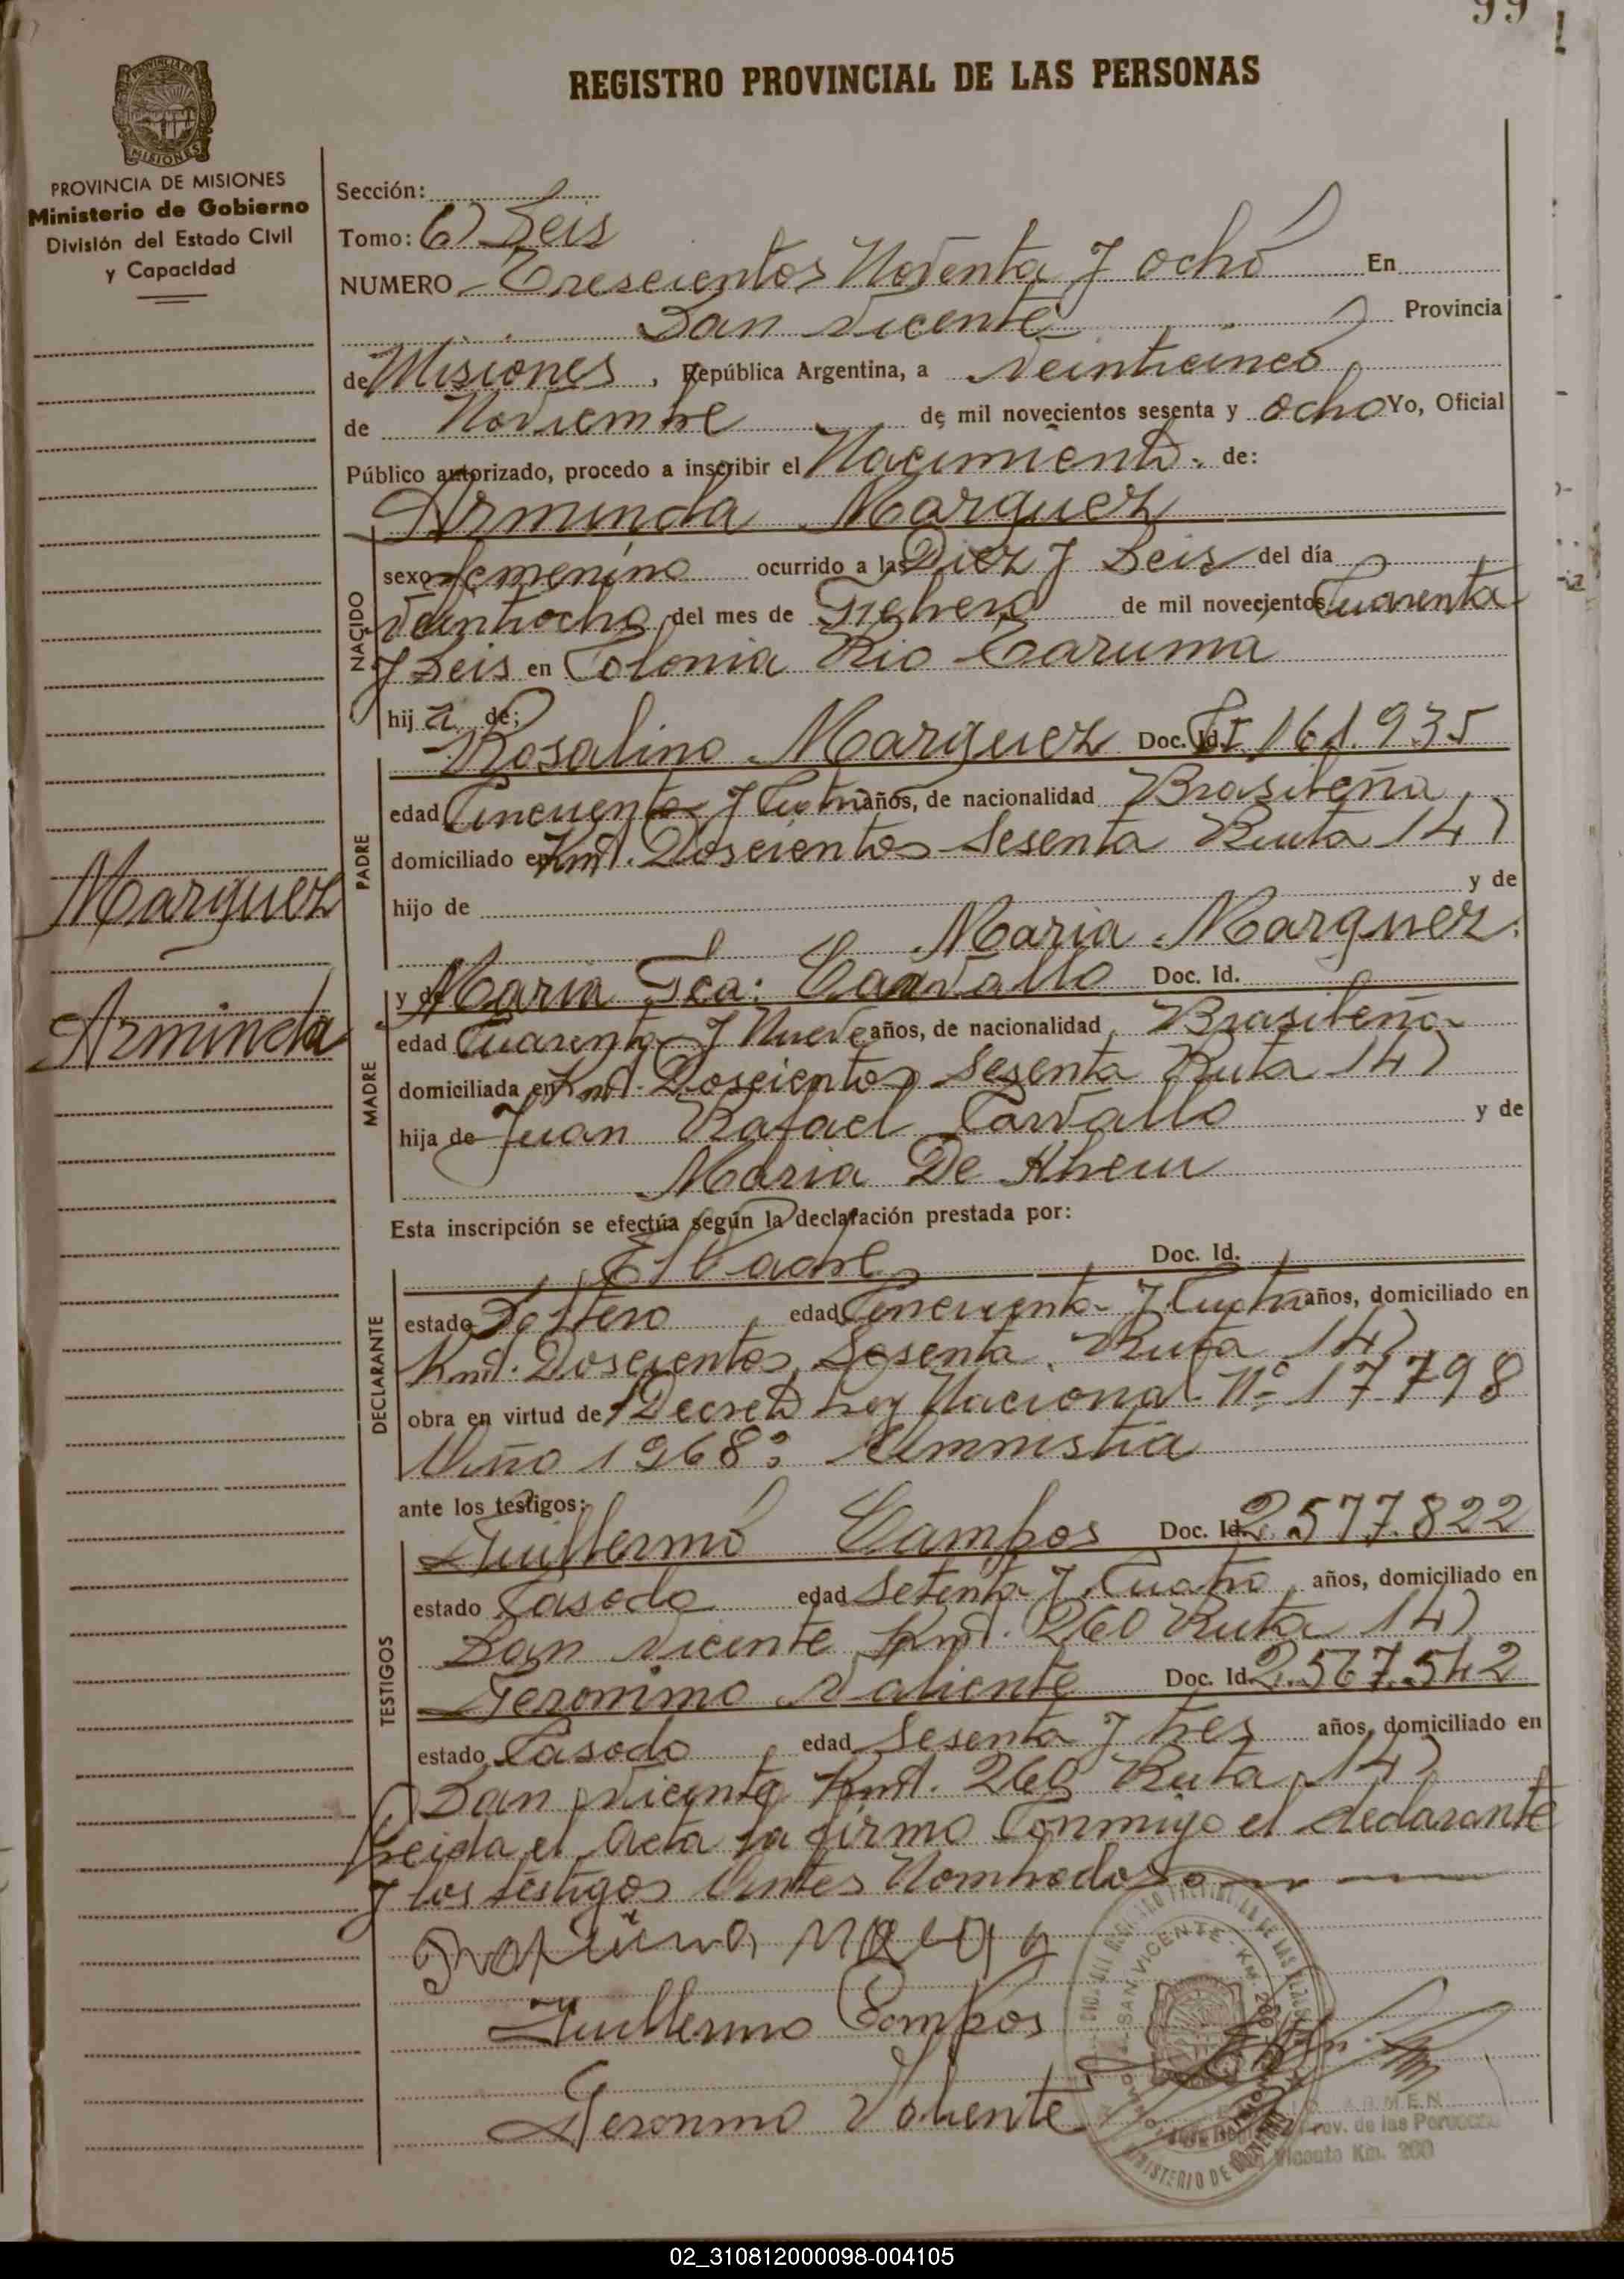 99
REGISTRO PROVINCIAL DE LAS PERSONAS
PROVINCIA DE MISIONES
Ministerio de Gobierno
División del Estado Civil
y Capacidad
Marquez
Arminda
Sección:
Tomo: 6) Seis
NUMERO Trescientos Noventa y ocho En
San Vicente Provincia
de Misiones, República Argentina, a Veinticinco
de Noviembre de mil novecientos sesenta y ocho Yo, Oficial
Público autorizado, procedo a inscribir el Nacimiento de:
Arminda Marquez
NACIDO
sexo femenino ocurrido a las Diez y Seis del día
Veintiocho del mes de Febrero de mil novecientos Cuarenta
y Seis en Colonia Rio
hija de:
Rosalino Marquez Doc. Id. 161.935
PADRE
edad Cincuenta y Cuatro años, de nacionalidad Brasileña
domiciliado en Kmt. Doscientos Sesenta Ruta 14)
hijo de y de
Maria Marquez.
y de Maria Fca: Carvallo Doc. Id.
MADRE
edad Cuarenta y Nueve años, de nacionalidad Brasileña
domiciliada en Kmt. Doscientos Sesenta Ruta 14)
hija de Juan Rafael Carvallo y de
Maria De
Esta inscripción se efectúa según la declaración prestada por:
El Padre Doc. Id.
DECLARANTE
estado Soltero edad Cincuenta y Cuatro años, domiciliado en
Kmt. Doscientos Sesenta Ruta 14)
obra en virtud de Decreto Ley Nacional Nº 17798
Año 1968: Amnistia
ante los testigos:
Guillermo Campos Doc. Id. 2.577.822
TESTIGOS
estado Casado edad Setenta y Cuatro años, domiciliado en
San Vicente Kmt. 260 Ruta 14)
Geronimo Valiente Doc. Id. 2.567.542
estado Casado edad Sesenta y tres años, domiciliado en
San Vicente Kmt. 260 Ruta 14)
Leida el Acta la firmo Conmigo el declarante
y los testigos Antes Nombrados
Guillermo Campos
Geronimo Valiente
SAN VICENTE - KM. 260
MINISTERIO DE GOBIERNO
Prov. de las Personas
Vicente Km. 260
02_310812000098-004105